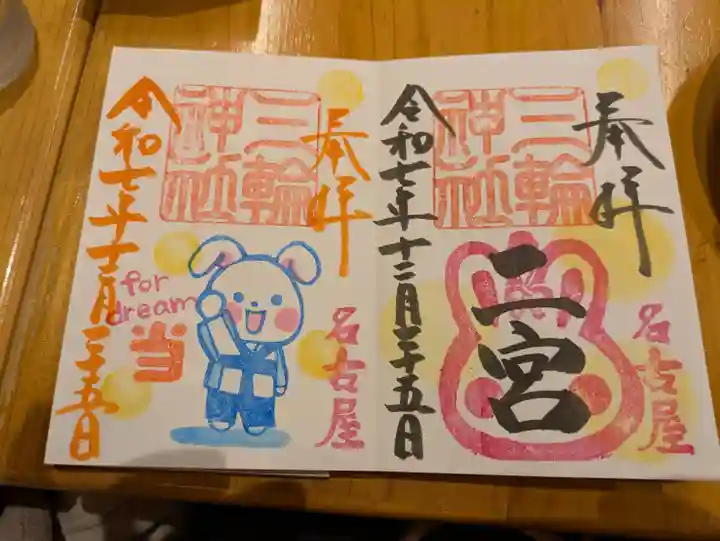 奉拝
三輪
神社
二宮
名古屋
令和七年十二月二十五日
奉拝
三輪
神社
名古屋
for
dream
当
令和七年十二月二十五日